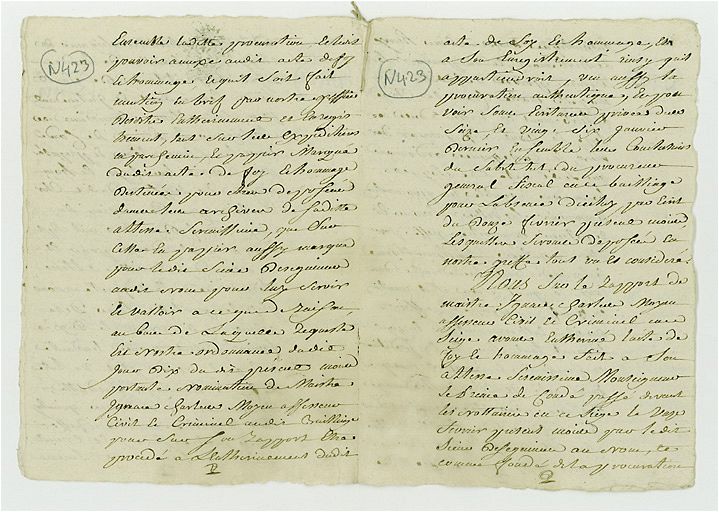 N423
Ensemble ladite procuration, et ledit
pouvoir annexé audit acte de foy
et hommage et qu'il soit fait
mention en bref par nostre greffier
dudit Entherinement et Enregis
trement, tant sur les expeditions
en parchemin, et papier Marqué
dudit acte de foy et hommage
destinée pour être deposée
dans les archives de sadite
altesse Serenissime, que sur
celles en papier aussy marqué
pour ledit Sieur
audit nom pour luy servir
et valloir a ce que de raison,
au bas de laquelle requeste
Est nostre ordonnance dudit
jour dix du dit present mois
portant nomination de Maitre
Ignace charles Moyen assesseur
Civil et Criminel audit Bailliage
pour sur son rapport Estre
procedé a l'Entherinement dudit
P
N423
acte de foy et hommage, Et
a son Enregistrement ainsy qu'il
appartiendroit, veu aussy la
procuration authentique, et pou
voir sous Ecriture privée des
Seize et vingt six janvier
dernier Ensemble les Conclusions
du Substitut du procureur
general fiscal en ce bailliage
pour l'absence d'iceluy par Ecrit
du Douze fevrier present mois,
Lesquelles seront deposée en
nostre greffe tout vu et consideré
Nous sur le rapport de
maitre Ignace charles Moyen
assesseur Civil et Criminel au
Siege avons Entheriné l'acte de
foy et hommage fait a Son
altesse Serenissime Monseigneur
le Prince de Condé passé devant
les nottaires en ce siege le onze
fevrier present mois par le dit
Sieur au nom, et
comme fondé de la procuration